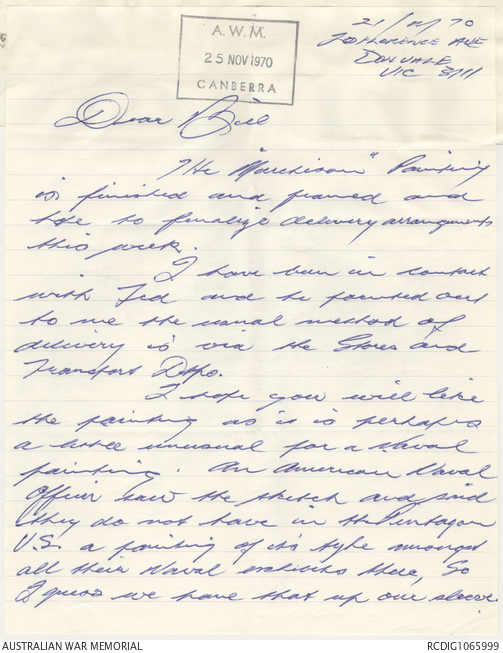 A.W.M.
25 NOV 1970
CANBERRA
21/ /70
Florence Ave
Donvale
Vic 3111
Dear Bill
The "Murchison" Painting
is finished and framed and
to finalize delivery arrangements
this week.
I have been in contact
with Fed and he pointed out
to me the usual method of
delivery is via the Stores and
Transport Depo.
I hope you will like
the painting as it is perhaps
a little unusual for a Naval
painting. An American Naval
Officer saw the sketch and said
they do not have in the Pentagon
U.S. a painting of its type amongst
all their Naval exhibits there, So
I guess we have that up our sleeve.
AUSTRALIAN WAR MEMORIAL
RCDIG1065999